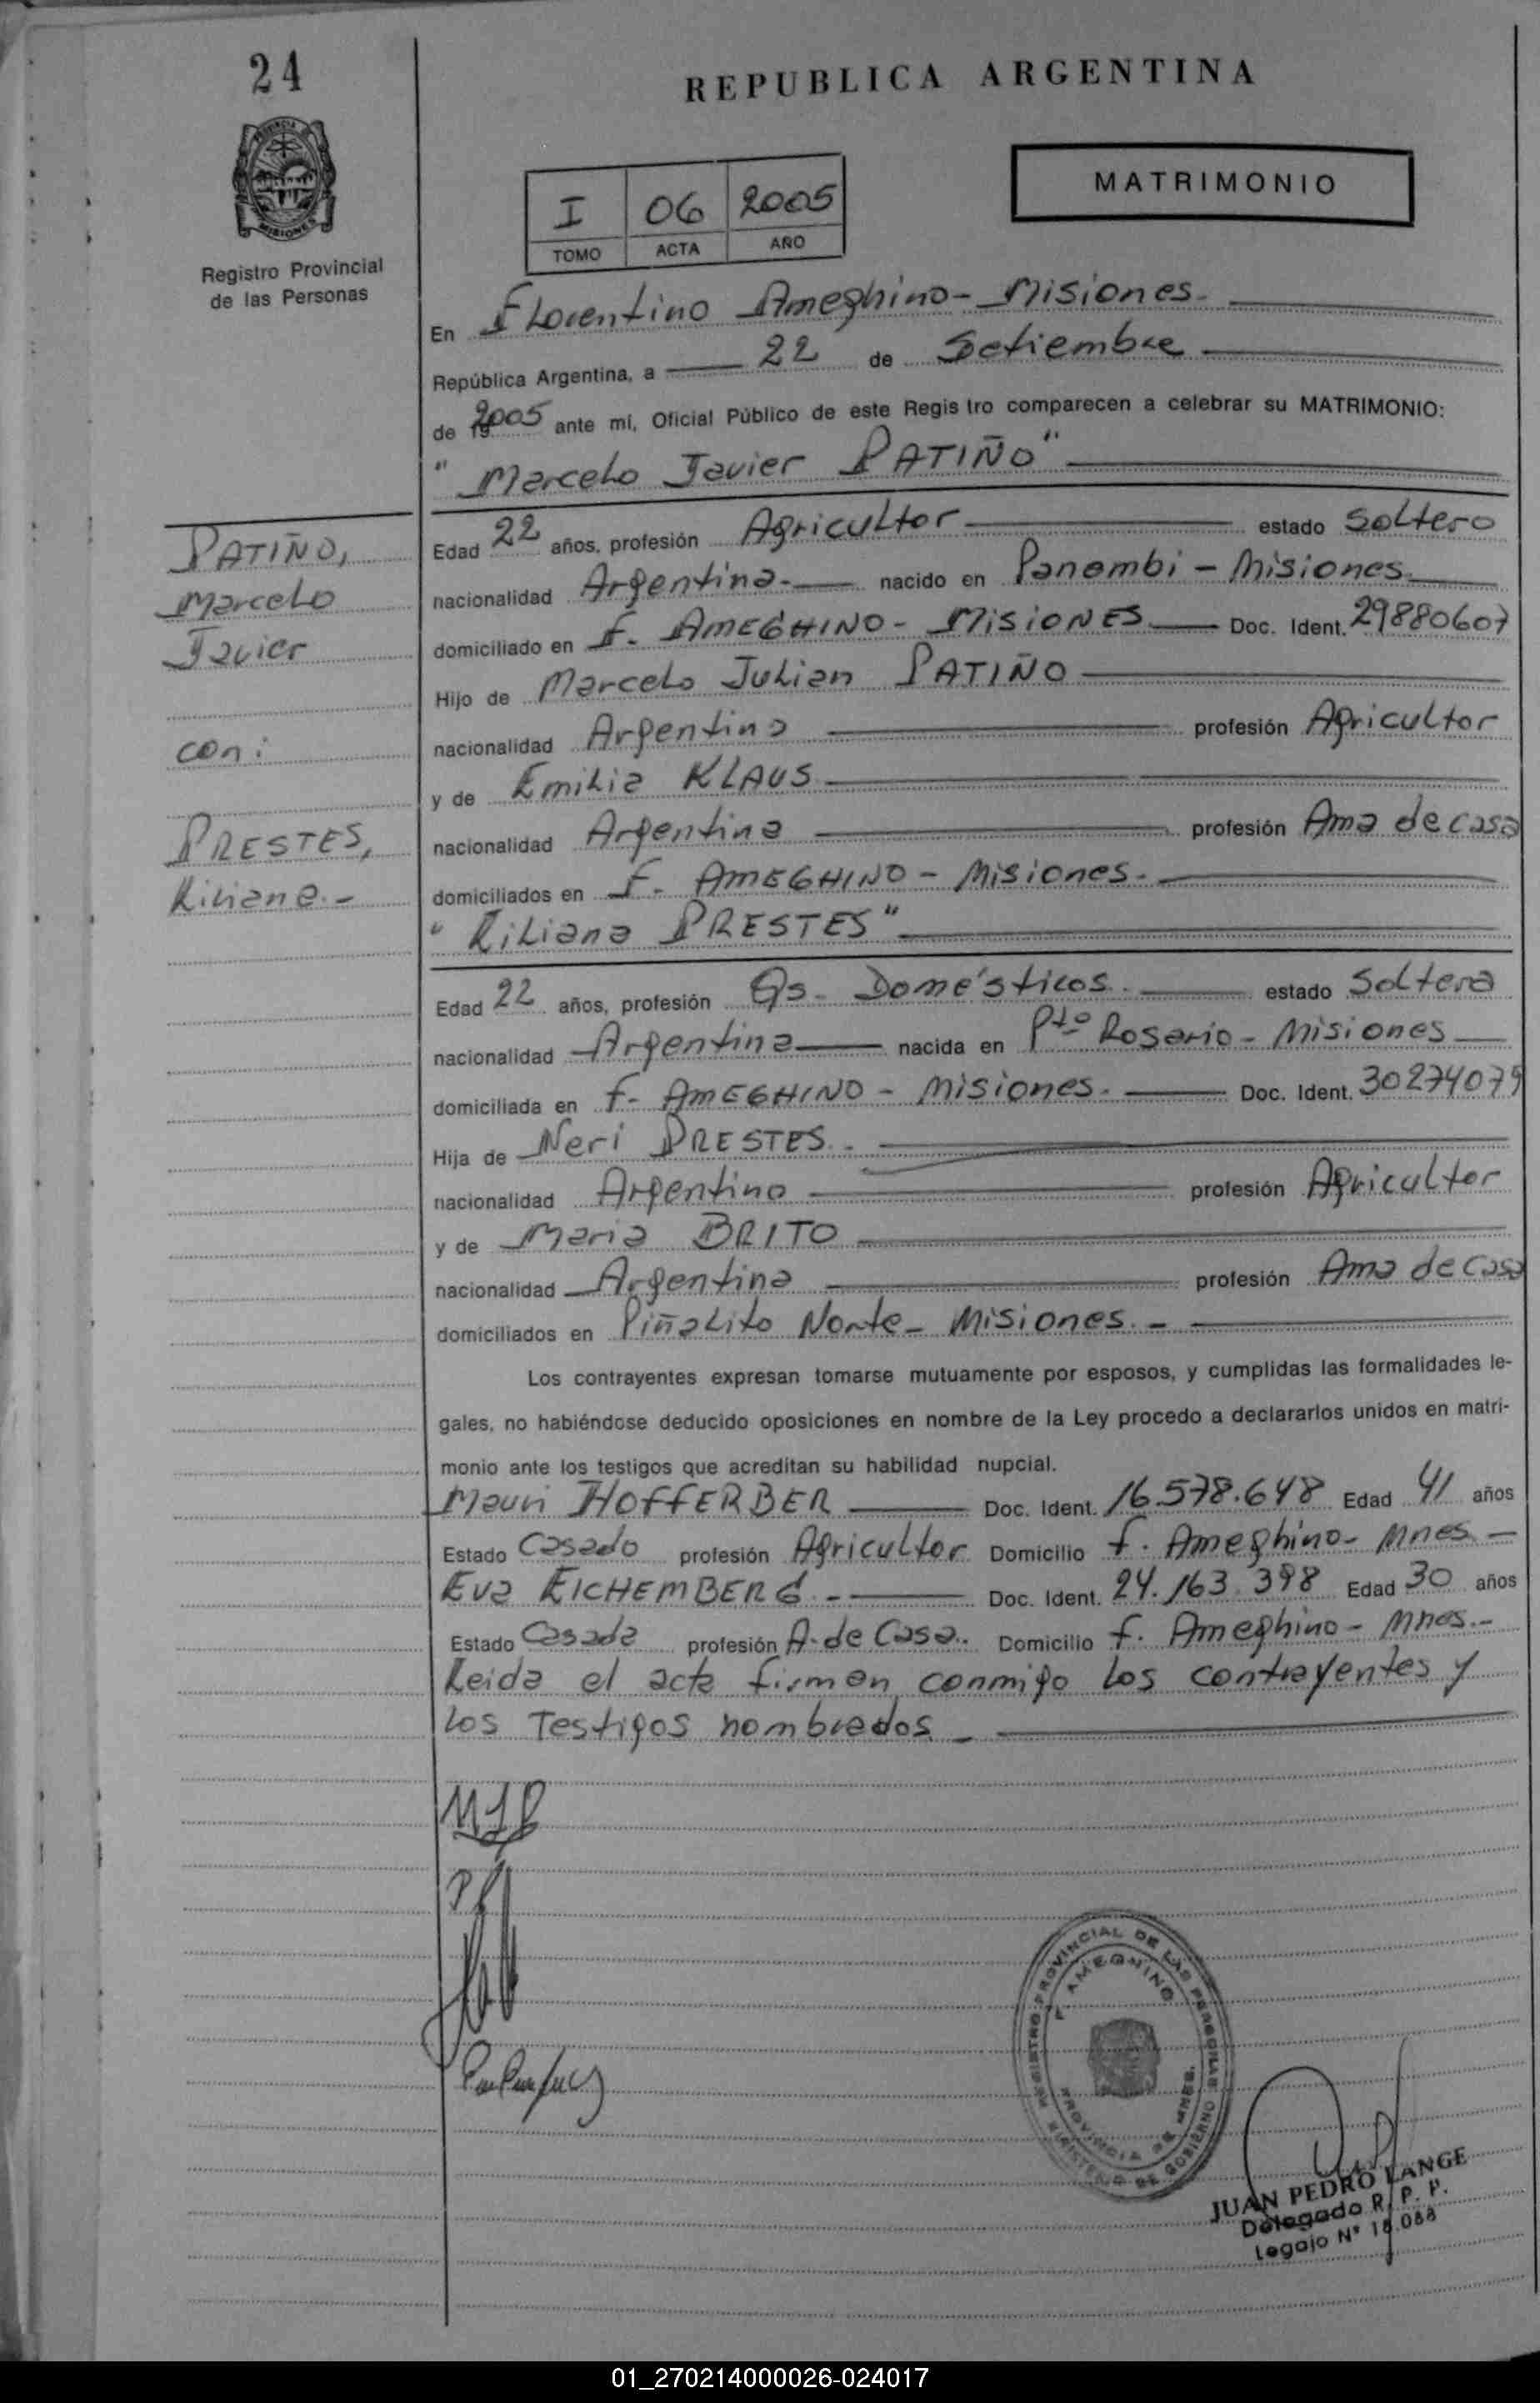 24
REPUBLICA ARGENTINA
MATRIMONIO
I 06 2005
TOMO ACTA AÑO
PROVINCIA DE
MISIONES
Registro Provincial
de las Personas
En Florentino Ameghino - Misiones -
República Argentina, a 22 de Setiembre
de 2005 ante mi, Oficial Público de este Registro comparecen a celebrar su MATRIMONIO:
"Marcelo Javier PATIÑO"
PATIÑO,
Marcelo
Javier
con:
PRESTES,
Liliana.-
Edad 22 años, profesión Agricultor estado Soltero
nacionalidad Argentina.- nacido en Panambi - Misiones.
domiciliado en F. AMEGHINO - MISIONES Doc. Ident. 29880607
Hijo de Marcelo Julian PATIÑO
nacionalidad Argentino profesión Agricultor
y de Emilia KLAUS
nacionalidad Argentina profesión Ama de casa
domiciliados en F. AMEGHINO - Misiones.-
"Liliana PRESTES"
Edad 22 años, profesión Qs. Domésticos. estado Soltera
nacionalidad Argentina nacida en Pto Rosario - Misiones
domiciliada en F. AMEGHINO - Misiones.- Doc. Ident. 30274079
Hija de Neri PRESTES.-
nacionalidad Argentino profesión Agricultor
y de Maria BRITO
nacionalidad Argentina profesión Ama de Casa
domiciliados en Piñalito Norte - Misiones.-
Los contrayentes expresan tomarse mutuamente por esposos, y cumplidas las formalidades le-
gales, no habiéndose deducido oposiciones en nombre de la Ley procedo a declararlos unidos en matri-
monio ante los testigos que acreditan su habilidad nupcial.
Mauri HOFFERBER Doc. Ident. 16.578.648 Edad 41 años
Estado Casado profesión Agricultor Domicilio F. Ameghino - Mnes.-
Eva EICHEMBERG.- Doc. Ident. 24.163.398 Edad 30 años
Estado Casada profesión A. de Casa. Domicilio F. Ameghino - Mnes.-
Leida el acta firman conmigo los contrayentes y
los Testigos nombrados.-
MJP
REGISTRO PROVINCIAL DE LAS PERSONAS
F. AMEGHINO
PROVINCIA DE MNES.
MINISTERIO DE GOBIERNO
JUAN PEDRO LANGE
Delegado R. P. P.
Legajo N° 18.088
01_270214000026-024017